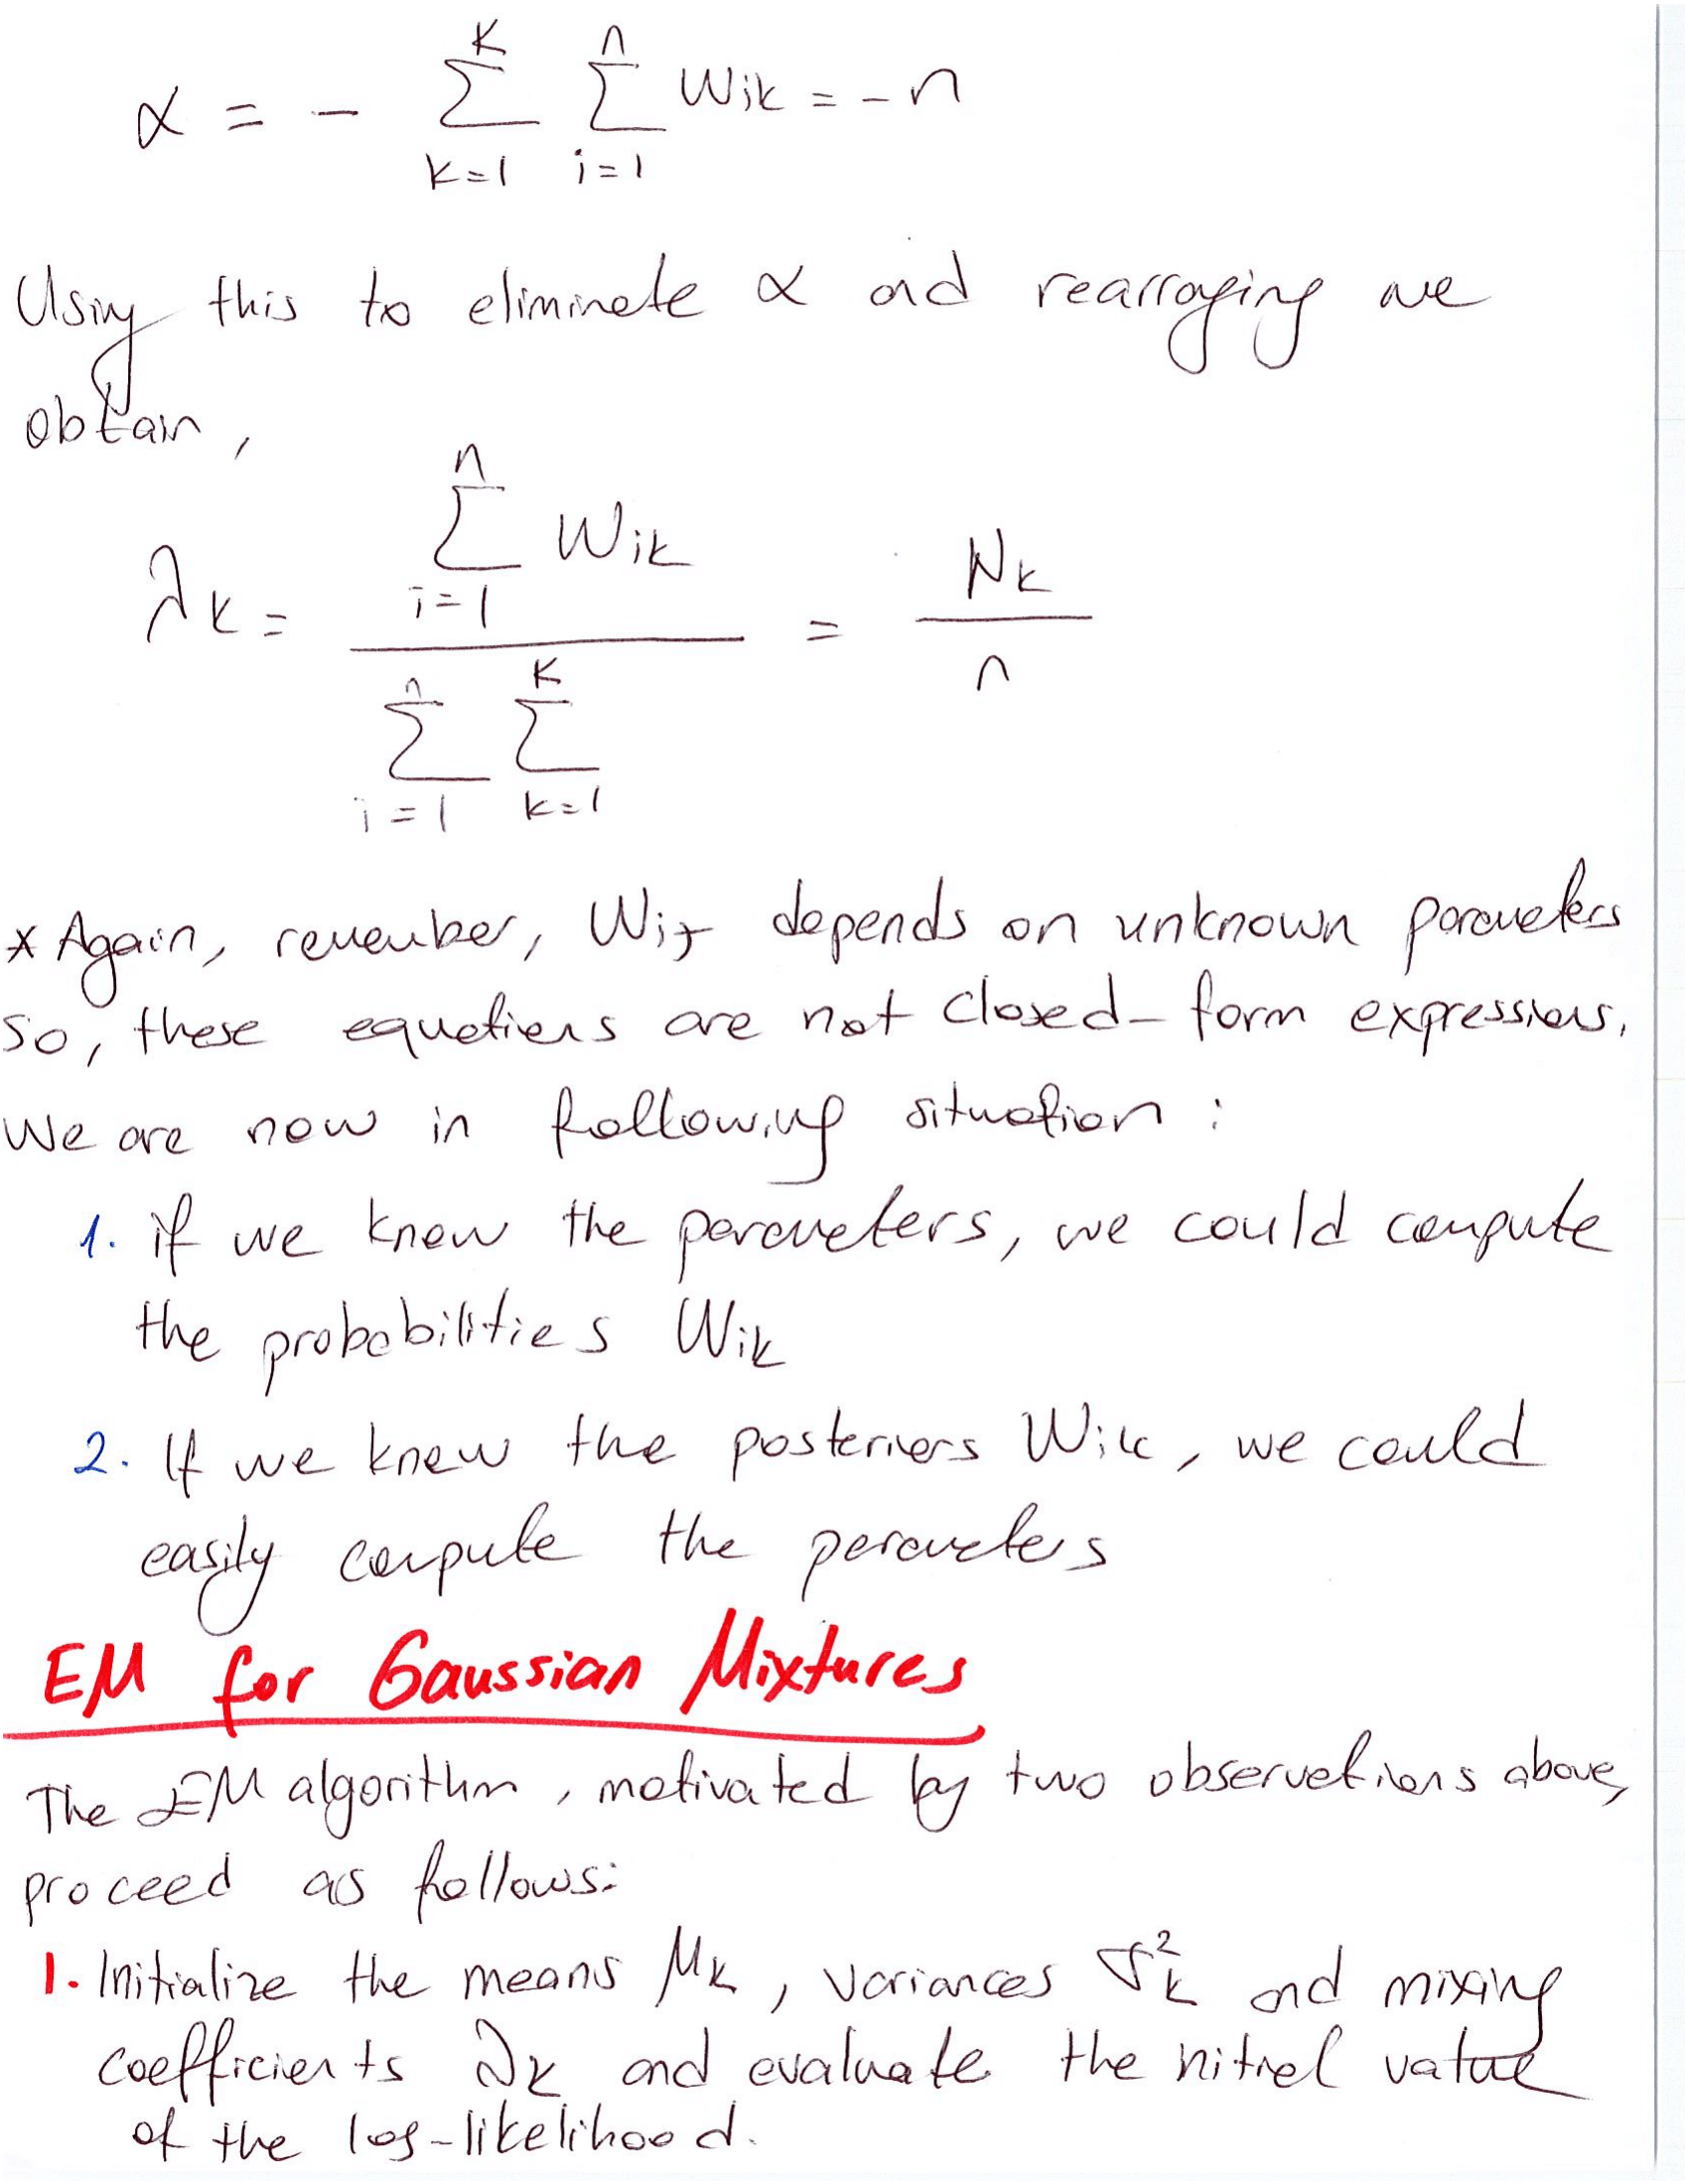 α = - Σ_{k=1}^{K} Σ_{i=1}^{n} Wik = -n
Using this to eliminate α and rearraging we
obtain,
λk = Σ_{i=1}^{n} Wik / Σ_{i=1}^{n} Σ_{k=1}^{K} = Nk / n
* Again, remember, Wij depends on unknown parameters
so, these equations are not closed-form expressions.
We are now in following situation :
1. if we knew the parameters, we could compute
the probabilities Wik
2. If we knew the posteriors Wik, we could
easily compute the parameters
EM for Gaussian Mixtures
The EM algorithm, motivated by two observations above,
proceed as follows:
1. Initialize the means μk, variances σ²k and mixing
coefficients λk and evaluate the nitial value
of the log-likelihood.